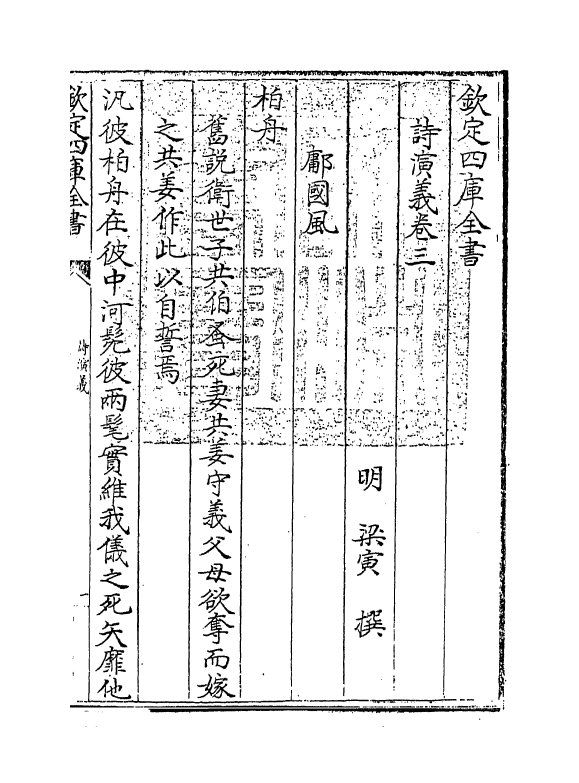 欽定四庫全書
詩演義卷三
明 梁寅 撰
鄘國風
柏舟
舊説衛世子共伯蚤死妻共姜守義父母欲奪而嫁
之共姜作此以自誓焉
汎彼柏舟在彼中河髧彼兩髦實維我儀之死矢靡他
欽定四庫全書
詩演義
一